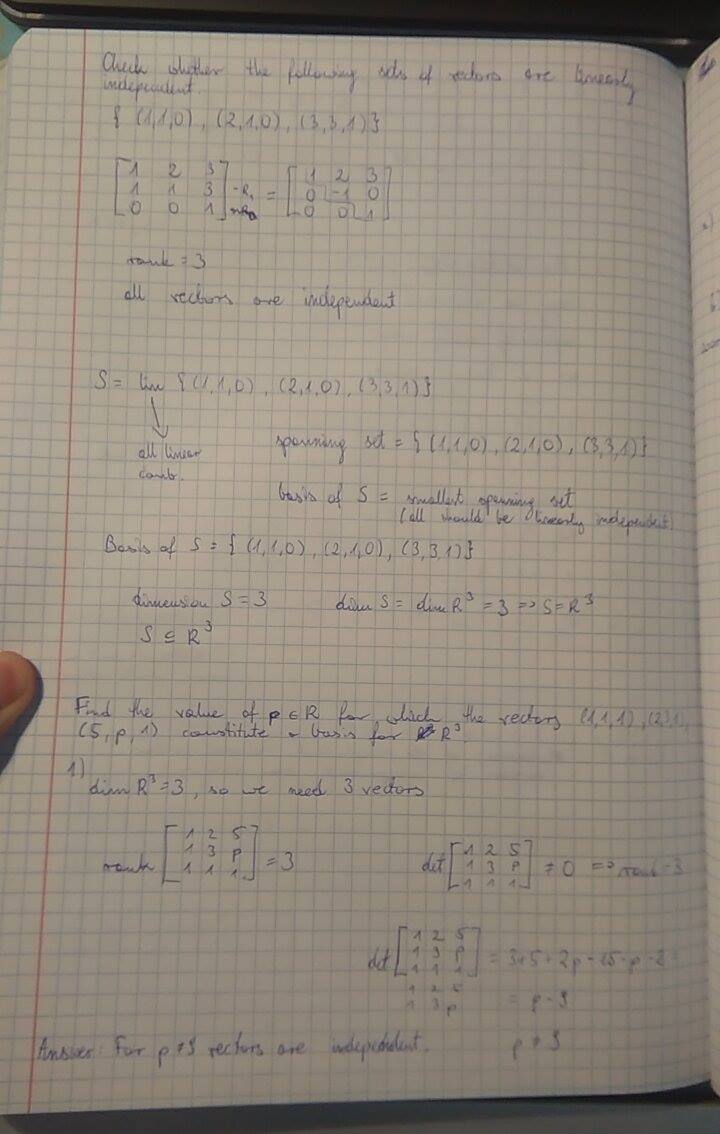 Check whether the following sets of vectors are linearly
independent.
{ (1,1,0) , (2,1,0) , (3,3,1)}
[1 2 3] [1 2 3]
[1 1 3] -R₁ = [0 -1 0]
[0 0 1] [0 0 1]
rank = 3
all vectors are independent
S = lin { (1,1,0) , (2,1,0) , (3,3,1)}
all linear
comb.
spanning set = { (1,1,0) , (2,1,0) , (3,3,1)}
basis of S = smallest spanning set
(all should be linearly independent)
Basis of S = { (1,1,0) , (2,1,0) , (3,3,1)}
dimension S = 3 dim S = dim R³ = 3 => S = R³
S ⊆ R³
Find the value of p ∈ R for which the vectors (1,1,1) , (2,3,1)
(5, p, 1) constitute a basis for R³
1)
dim R³ = 3 , so we need 3 vectors
rank [1 2 5; 1 3 p; 1 1 1] = 3 det [1 2 5; 1 3 p; 1 1 1] ≠ 0 => rank = 3
det [1 2 5; 1 3 p; 1 1 1] = 3+5+2p-15-p-2 =
1 2 5
1 3 p = p - 9
p ≠ 9
Answer: For p ≠ 9 vectors are independent.